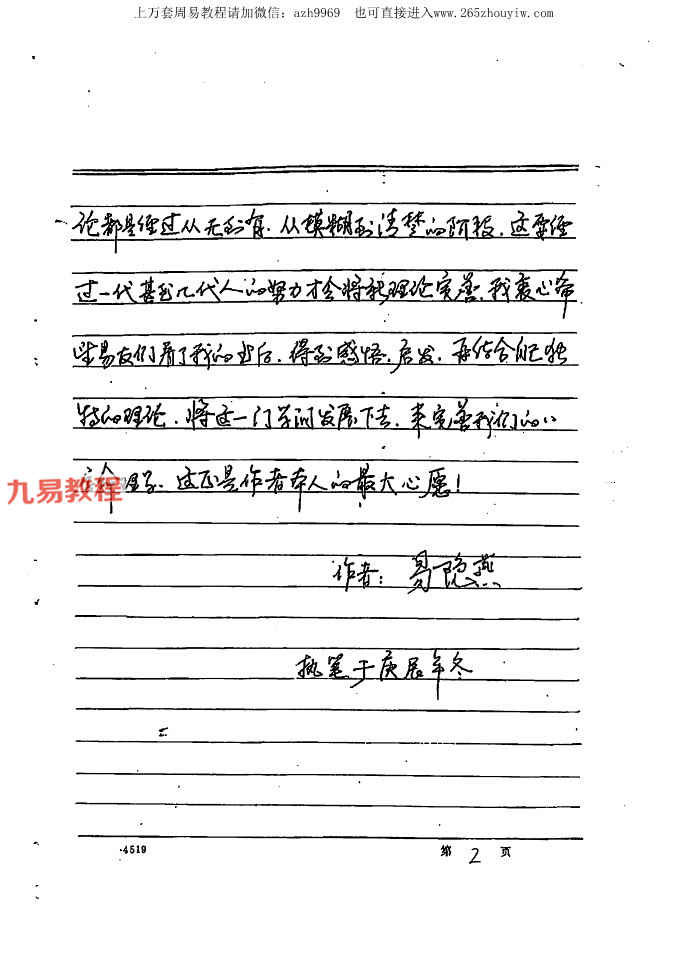 上万套周易教程请加微信：azh9969　也可直接进入www.265zhouyiw.com
论都是经过从无到有．从模糊到清楚的阶段．这要经
过一代甚至几代人的努力才会将此理论完善．我衷心希
望易友们看了我的书后．得到感悟．启发．再结合自己独
特的理论．将这一门学问发展下去．来完善我们的八
命理学．这正是作者本人的最大心愿！
九易教程
作者：易隐燕
执笔于庚辰年冬
4519
第 2 页